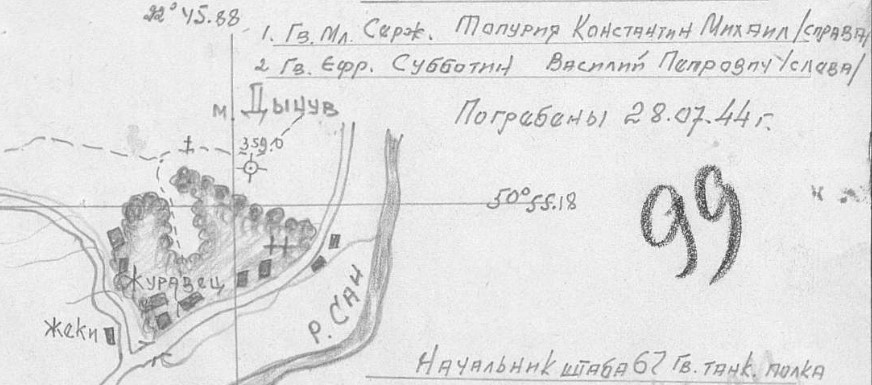 22° 45.88
1. Гв. Мл. Сарж. Топурия Константин Михаил /справа/
2 Гв. Ефр. Субботин Василий Петрович /слава/
м. Дыцув
Пограбаны 28.07.44 г.
359.0
50° 55.18
99
Журавец
Жеки
Р. Сан
Начальник штаба 62 Гв. танк. полка